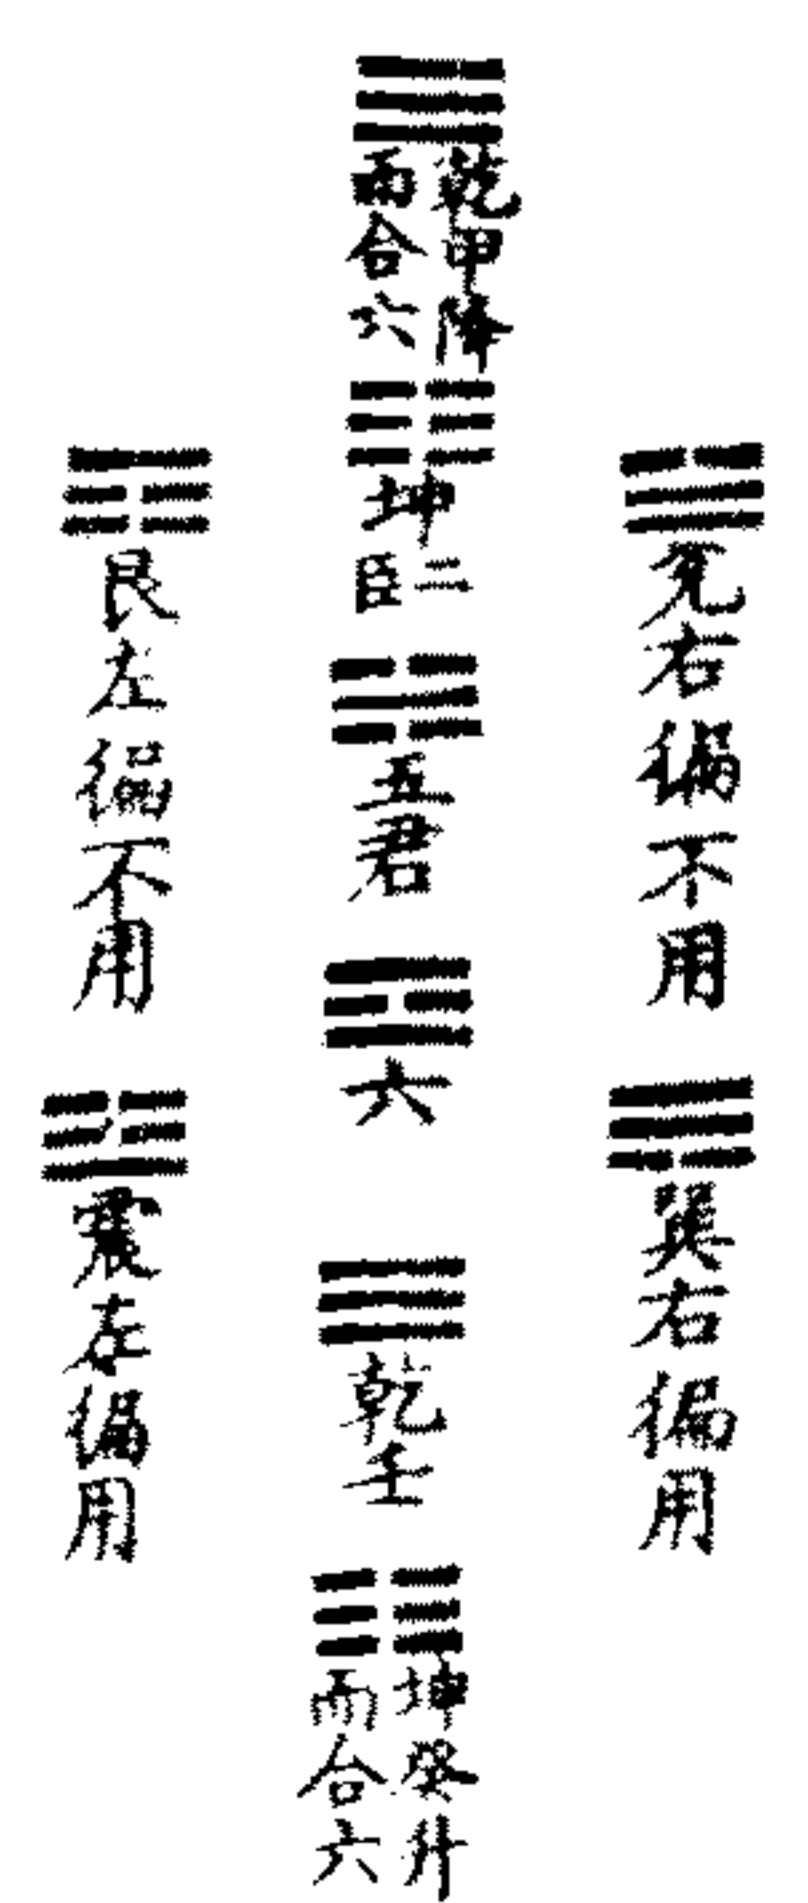 兌右徧不用
巽右徧用
乾甲降
而合六
坤
二
臣
五君
六
乾壬
坤癸升
而合六
艮左徧不用
震左徧用